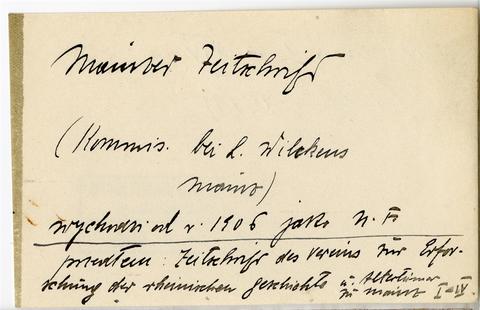 Mainzer Zeitschrift
(Kommis. bei L. Wilckens
Mainz)
wychodzi od r. 1906 jako N. F.
przedtem: Zeitschrift des Vereins zur Erfor-
schung der rheinischen Geschichte u. Altertümer
zu Mainz I-IV